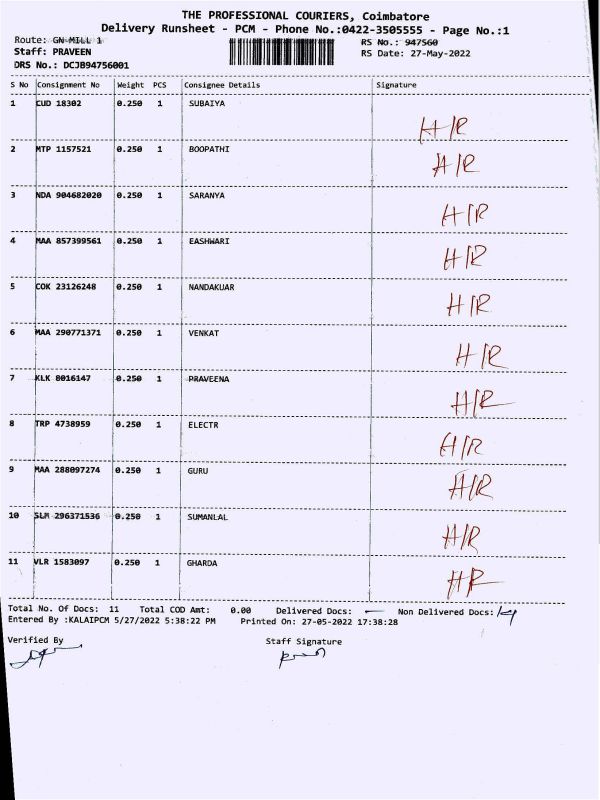 THE PROFESSIONAL COURIERS, Coimbatore
Delivery Runsheet - PCM - Phone No.:0422-3505555 - Page No.:1
Route: GN-MILL 1 RS No.: 947560
Staff: PRAVEEN RS Date: 27-May-2022
DRS No.: DCJB94756001
S No Consignment No Weight PCS Consignee Details Signature
1 CUD 18302 0.250 1 SUBAIYA H/R
2 MTP 1157521 0.250 1 BOOPATHI H/R
3 NDA 904682020 0.250 1 SARANYA H/R
4 MAA 857399561 0.250 1 EASHWARI H/R
5 COK 23126248 0.250 1 NANDAKUAR H/R
6 MAA 290771371 0.250 1 VENKAT H/R
7 KLK 8016147 0.250 1 PRAVEENA H/R
8 TRP 4738959 0.250 1 ELECTR H/R
9 MAA 288097274 0.250 1 GURU H/R
10 SLM 296371536 0.250 1 SUMANLAL H/R
11 VLR 1583097 0.250 1 GHARDA HR
Total No. Of Docs: 11 Total COD Amt: 0.00 Delivered Docs: — Non Delivered Docs:
Entered By :KALAIPCM 5/27/2022 5:38:22 PM Printed On: 27-05-2022 17:38:28
Verified By Staff Signature